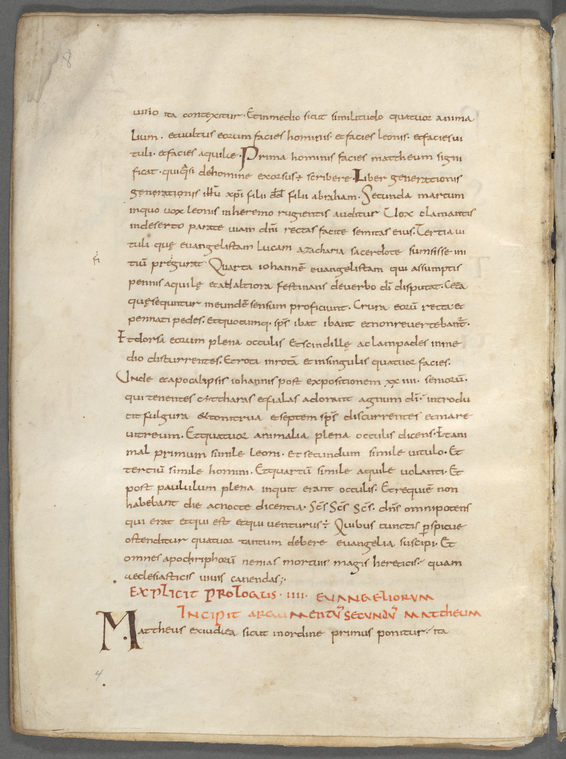 8
uisio ita contexitur. Et in medio sicut similitudo quatuor anima
lium. et uultus eorum facies hominis. et facies leonis. et facies ui
tuli. et facies aquilae. Prima hominis facies mattheum signi
ficat. qui quasi de homine exorsus ÷ scribere. Liber generationis
generationis ihu xpi filii dd filii abraham. Secunda marcum
in quo uox leonis in heremo rugientis auditur. Uox clamantis
in deserto parate uiam dni rectas facite semitas eius. Tertia ui
tuli quę euangelistam lucam a zacharia sacerdote sumsisse ini
tiū pręfigurat. Quarta iohannē euangelistam qui assumptis
pennis aquilę et ad altiora festinans de uerbo di disputat. Cetera
quę sequuntur in eundē sensum proficiunt. Crura eorū recta et
pennati pedes. Et quocumq; sps ibat ibant et non reuertebant.
Et dorsa eorum plena occulis. Et scindille ac lampades in me
dio discurrentes. Et rota in rota et in singulis quatuor facies.
Unde et apocalipsis iohannis post expositionem xx iiii. seniorū.
qui tenentes cytharas et fialas adorant agnum di. introdu
cit fulgura et tonitrua et septem sps discurrentes et mare
uitreum. Et quatuor animalia plena occulis dicens. Et ani
mal primum simile leoni. Et secundum simile uitulo. Et
tertiū simile homini. Et quartū simile aquile uolanti. Et
post paululum plena inquit erant occulis. Et requiē non
habebant die ac nocte dicentia. Scs Scs Scs. dns omnipotens
qui erat et qui est et qui uenturus ÷ Quibus cunctis pspicue
ostenditur quatuor tantum debere euangelia suscipi. Et
omnes apochriphorū nenias mortuis magis hereticis. quam
aeclesiasticis uiuis canendas;
EXPLICIT PROLOGUS . IIII . EUANGELIORUM
INCIPIT ARGUMENTŪ SECUNDŪ MATTHEUM
Mattheus ex iudea sicut in ordine primus ponitur. ita
4